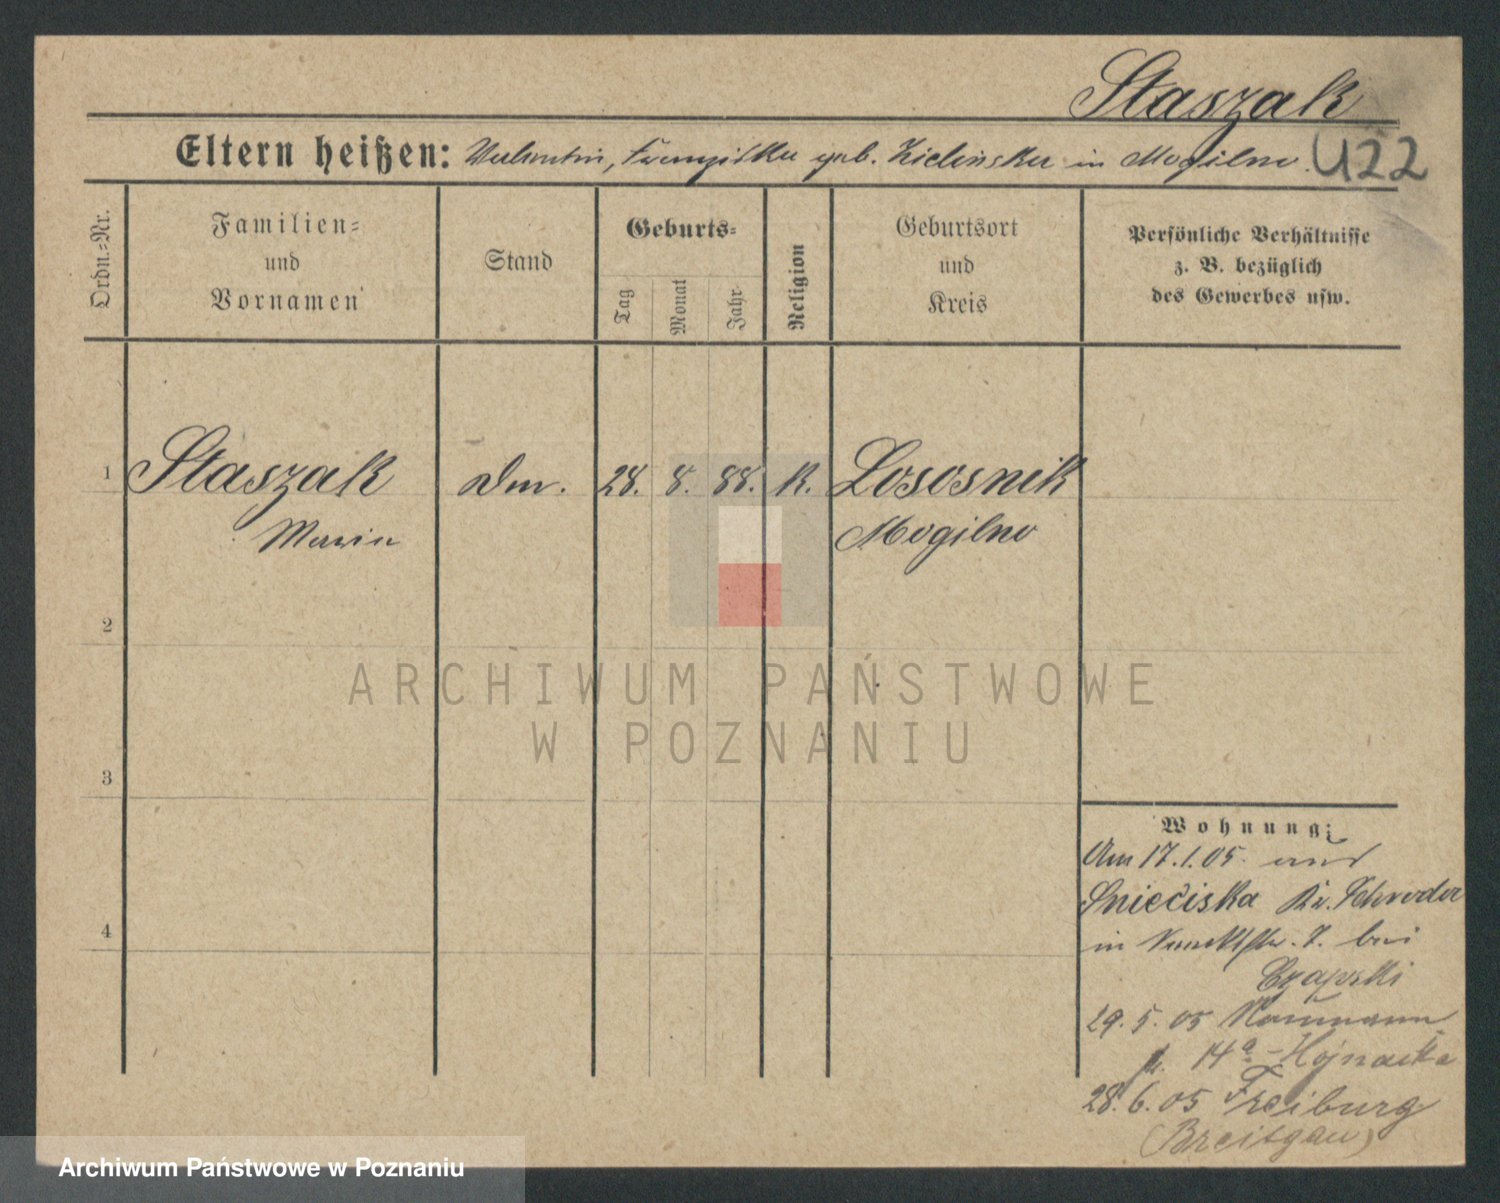 Staszak
Eltern heißen: Valentin, Franziska geb. Zielinska in Mogilno. U22
Ordn.=Nr.
Familien=
und
Vornamen
Stand
Geburts=
Tag
Monat
Jahr
Religion
Geburtsort
und
Kreis
Persönliche Verhältnisse
z. B. bezüglich
des Gewerbes usw.
1 Staszak 28. 8. 88. K. Lososnik
Maria Mogilno
2
3
4
Wohnung:
Am 17.1.05. aus
Sniećiska Kr. Schroda
in 7. bei
Czapski
29. 5. 05 Naumann
14a - Hojnacka
28. 6. 05 Freiburg
(Breisgau)
ARCHIWUM PAŃSTWOWE
W POZNANIU
Archiwum Państwowe w Poznaniu